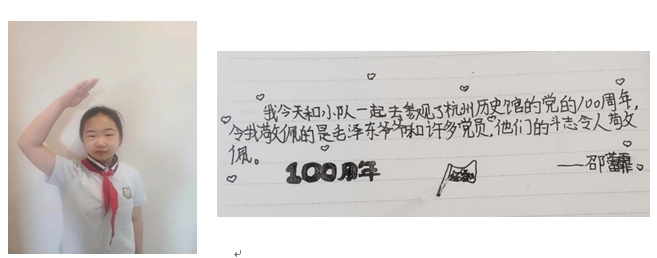 我今天和小队一起去参观了杭州历史馆的党的100周年,
令我敬佩的是毛泽东爷爷和许多党员,他们的斗志令人敬
佩。
100周年
——邵蕾霏